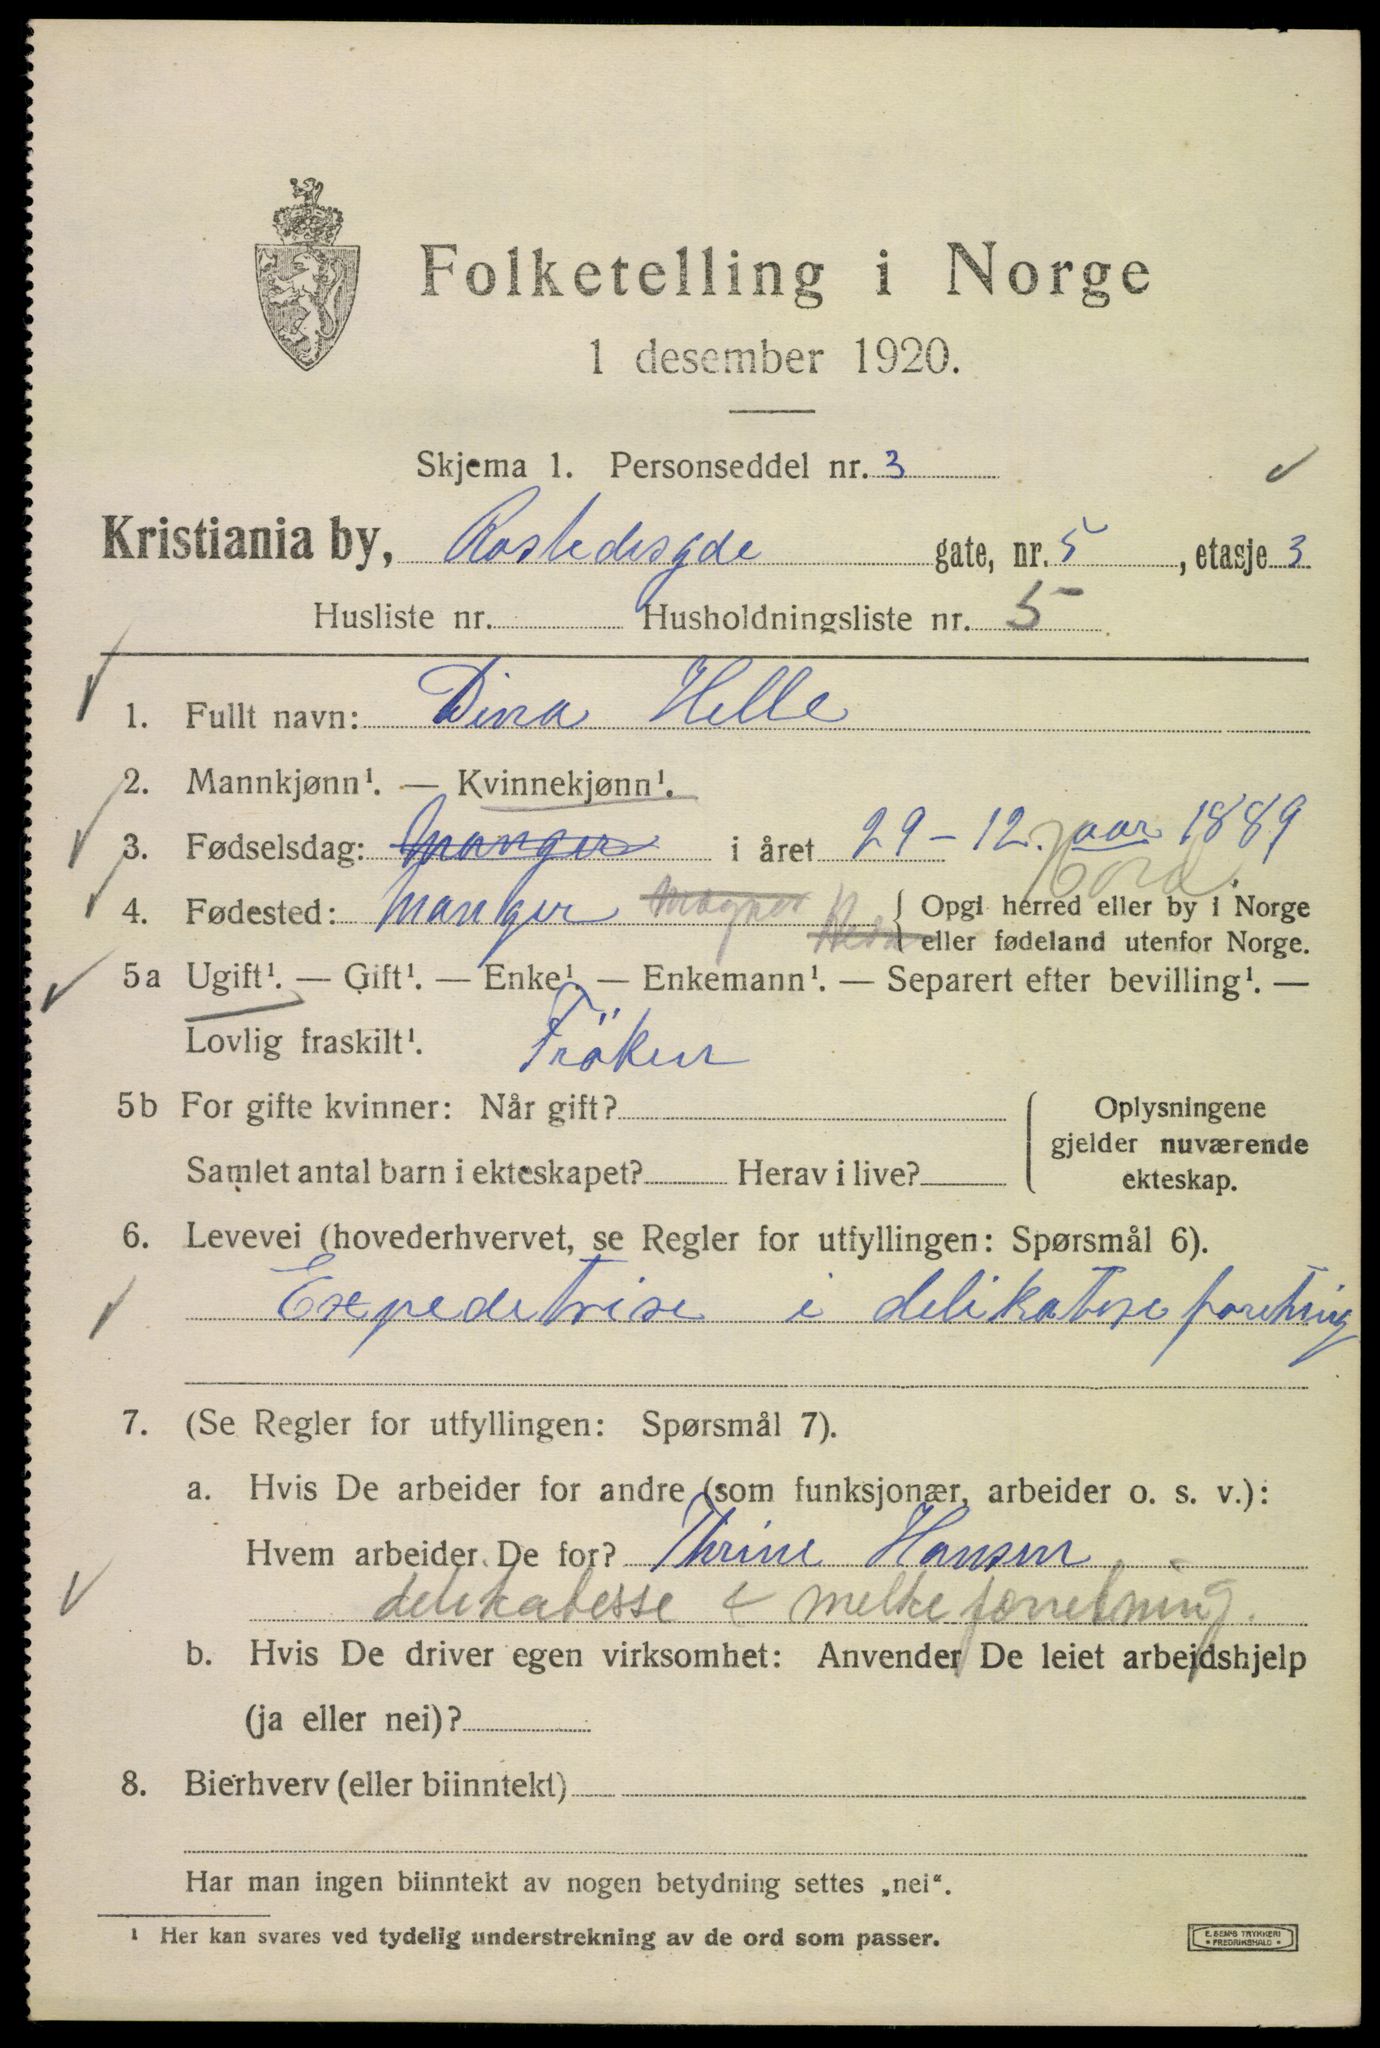 Folketelling i Norge
1 desember 1920.
Skjema 1. Personseddel nr. 3
Kristiania by, Rostedsgde gate, nr. 5, etasje 3
Husliste nr. Husholdningsliste nr. 5
1. Fullt navn: Dina Helle
2. Mannkjønn¹. — Kvinnekjønn¹.
3. Fødselsdag: Manger i året 29-12. aar 1889
4. Fødested: Manger { Opgi herred eller by i Norge
eller fødeland utenfor Norge.
5a Ugift¹. — Gift¹. — Enke¹. — Enkemann¹. — Separert efter bevilling¹. —
Lovlig fraskilt¹. Fröken
5b For gifte kvinner: Når gift? Oplysningene
gjelder nuværende
Samlet antal barn i ekteskapet? Herav i live? ekteskap.
6. Levevei (hovederhvervet, se Regler for utfyllingen: Spørsmål 6).
Expeditrise i delikatese foretning
7. (Se Regler for utfyllingen: Spørsmål 7).
a. Hvis De arbeider for andre (som funksjonær, arbeider o. s. v.):
Hvem arbeider De for? Thrine Hansen
delikatesse & melkeforretning.
b. Hvis De driver egen virksomhet: Anvender De leiet arbeidshjelp
(ja eller nei)?
8. Bierhverv (eller biinntekt)
Har man ingen biinntekt av nogen betydning settes „nei“.
¹ Her kan svares ved tydelig understrekning av de ord som passer.
E. SEM'S TRYKKERI
• FREDRIKSHALD •